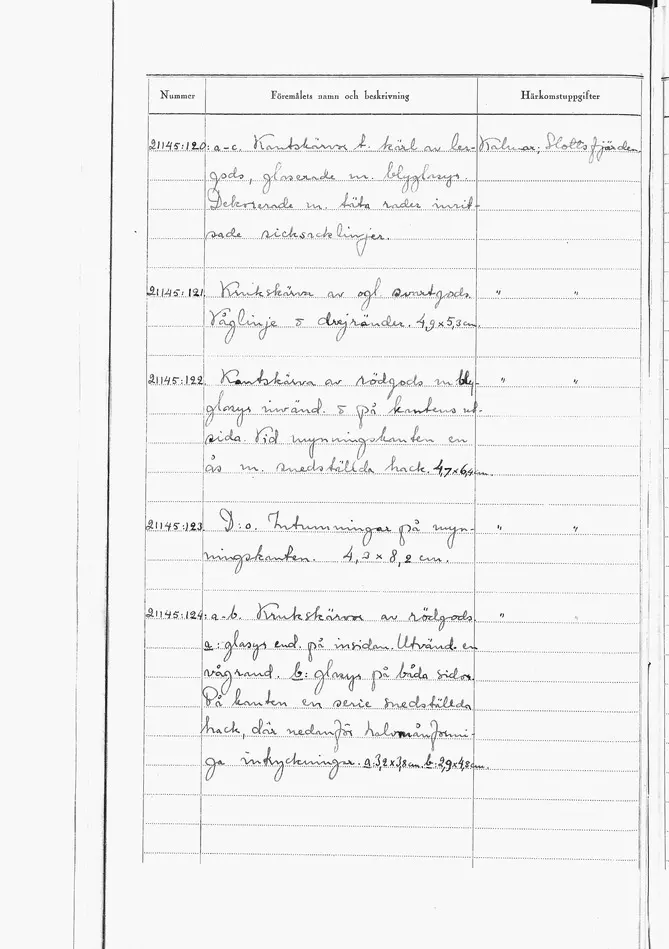 Nummer Föremålets namn och beskrivning Härkomstuppgifter
21145:120: a-c. Kantskärvor t. kärl av ler- Kalmar; Slottsfjärden
gods, glaserade m. blyglasyr.
Dekorerade m. täta rader inrit-
sade sicksacklinjer.
21145:121. Krukskärva av ogl svartgods. " "
Våglinje o drejränder. 4,9x5,3cm.
21145:122. Kantskärva av rödgods m bly- " "
glasyr invänd. o på kantens ut-
sida. Vid mynningskanten en
ås m. snedställda hack. 4,7x6,4cm.
21145:123. D:o. Intumningar på myn- " "
ningskanten. 4,2 x 8,2 cm.
21145:124: a-b. Krukskärvor av rödgods. " "
a: glasyr end. på insidan. Utvänd. en
vågrand. b: glasyr på båda sidor.
På kanten en serie snedställda
hack, där nedanför halvmånformi-
ga intryckningar. a:3,2x3,8cm. b:2,9x4,8cm.